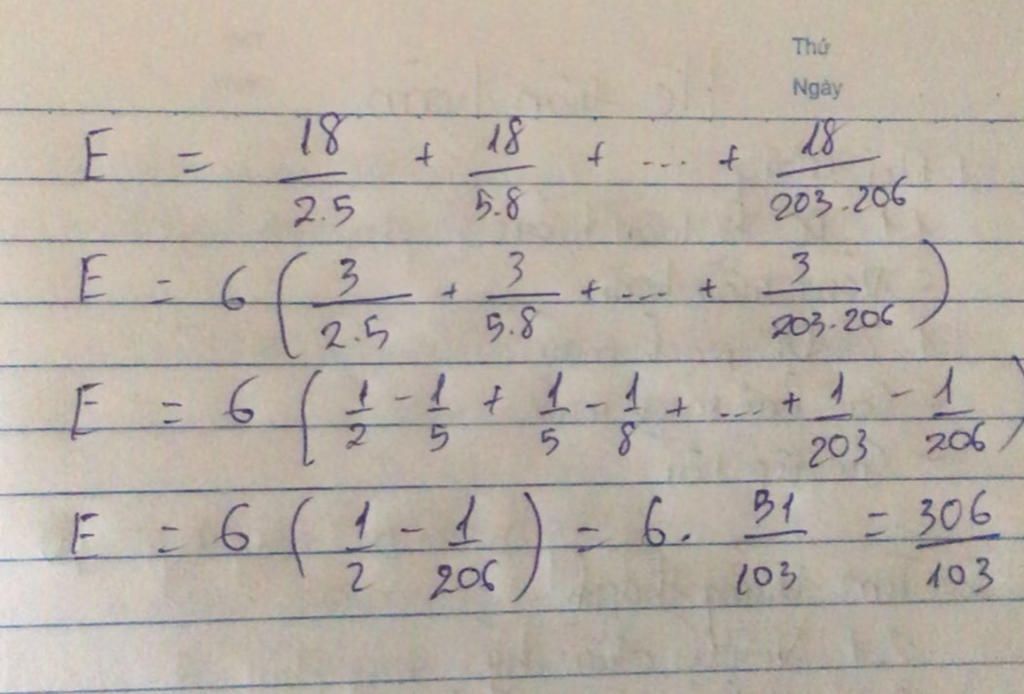 Thứ
Ngày
E = 18/2.5 + 18/5.8 + ... + 18/203.206
E = 6 (3/2.5 + 3/5.8 + ... + 3/203.206)
E = 6 (1/2 - 1/5 + 1/5 - 1/8 + ... + 1/203 - 1/206)
E = 6 (1/2 - 1/206) = 6. 51/103 = 306/103